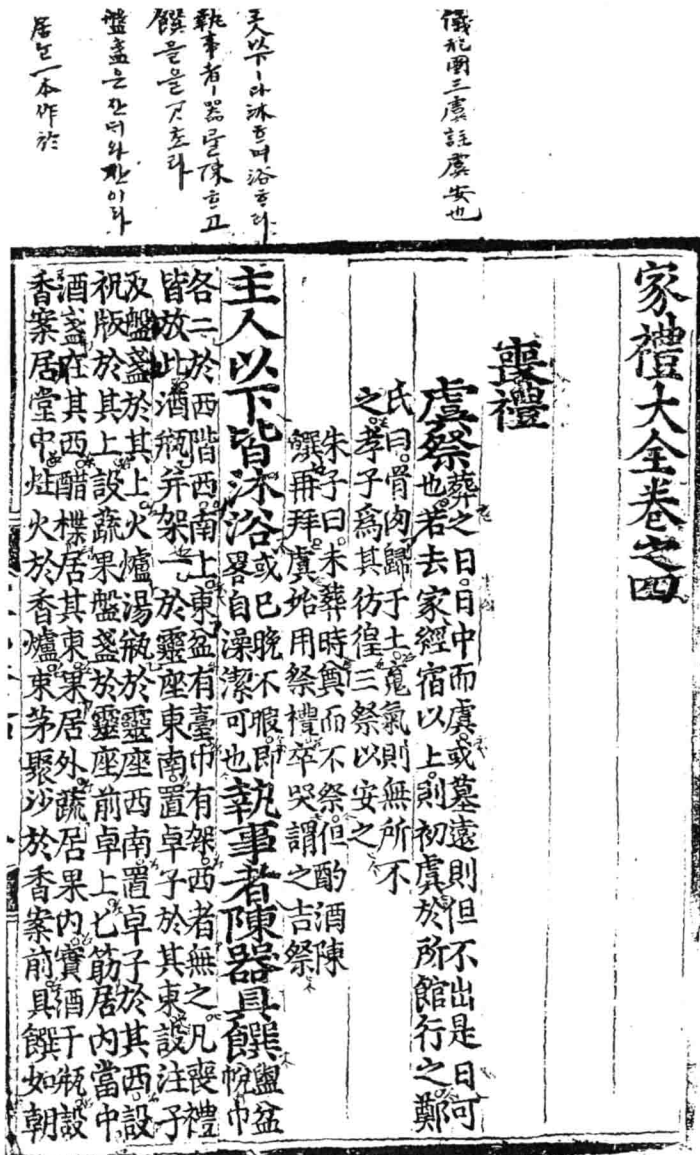 儀礼圖三虞註虞安也
主人以下ㅣ다沐ᄒᆞ며浴ᄒᆞ라
執事者ㅣ器를陳ᄒᆞ고
饌을을ᄀᆞ초라
盤盞은잔
居
一本作於
家禮大全卷之四
喪禮
虞祭
葬之日日中而虞或墓遠則但不出是日可
也若去家經宿以上則初虞於所館行之鄭
氏曰骨肉歸于土䰟氣則無所不
之孝子爲其彷徨三祭以安之
朱子曰未葬時奠而不祭但酌酒陳
饌再拜虞始用祭禮卒哭謂之吉祭
主人以下皆沐浴
或已晚不暇即
畧自澡潔可也
執事者陳器具饌
盥盆
帨巾
各二於西階西南上東盆有臺巾有架西者無之凡喪禮
皆放此酒瓶并架一於靈座東南置卓子於其東設注子
及盤盞於其上火爐湯瓶於靈座西南置卓子於其西設
祝版於其上設蔬果盤盞於靈座前卓上匕筯居內當中
酒盞在其西醋楪居其東果居外蔬居果內實酒于瓶設
香案居堂中炷火於香爐束茅聚沙於香案前具饌如朝